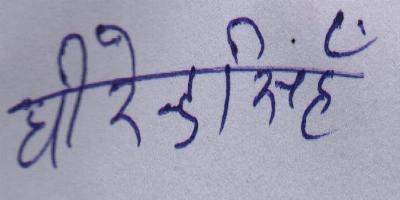 धीरेन्द्र सिंह